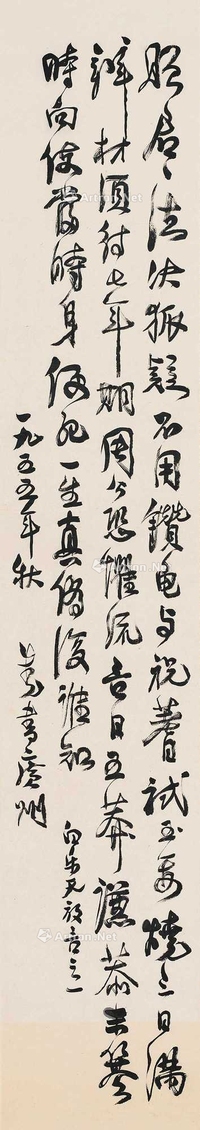 贈君一法決狐疑不用鑽龜与祝蓍試玉要燒三日滿
辨材須待七年期周公恐懼流言日王莽謙恭未篡
時向使當時身便死一生真偽復誰知
白乐天放言之一
一九五五年秋
書廣州